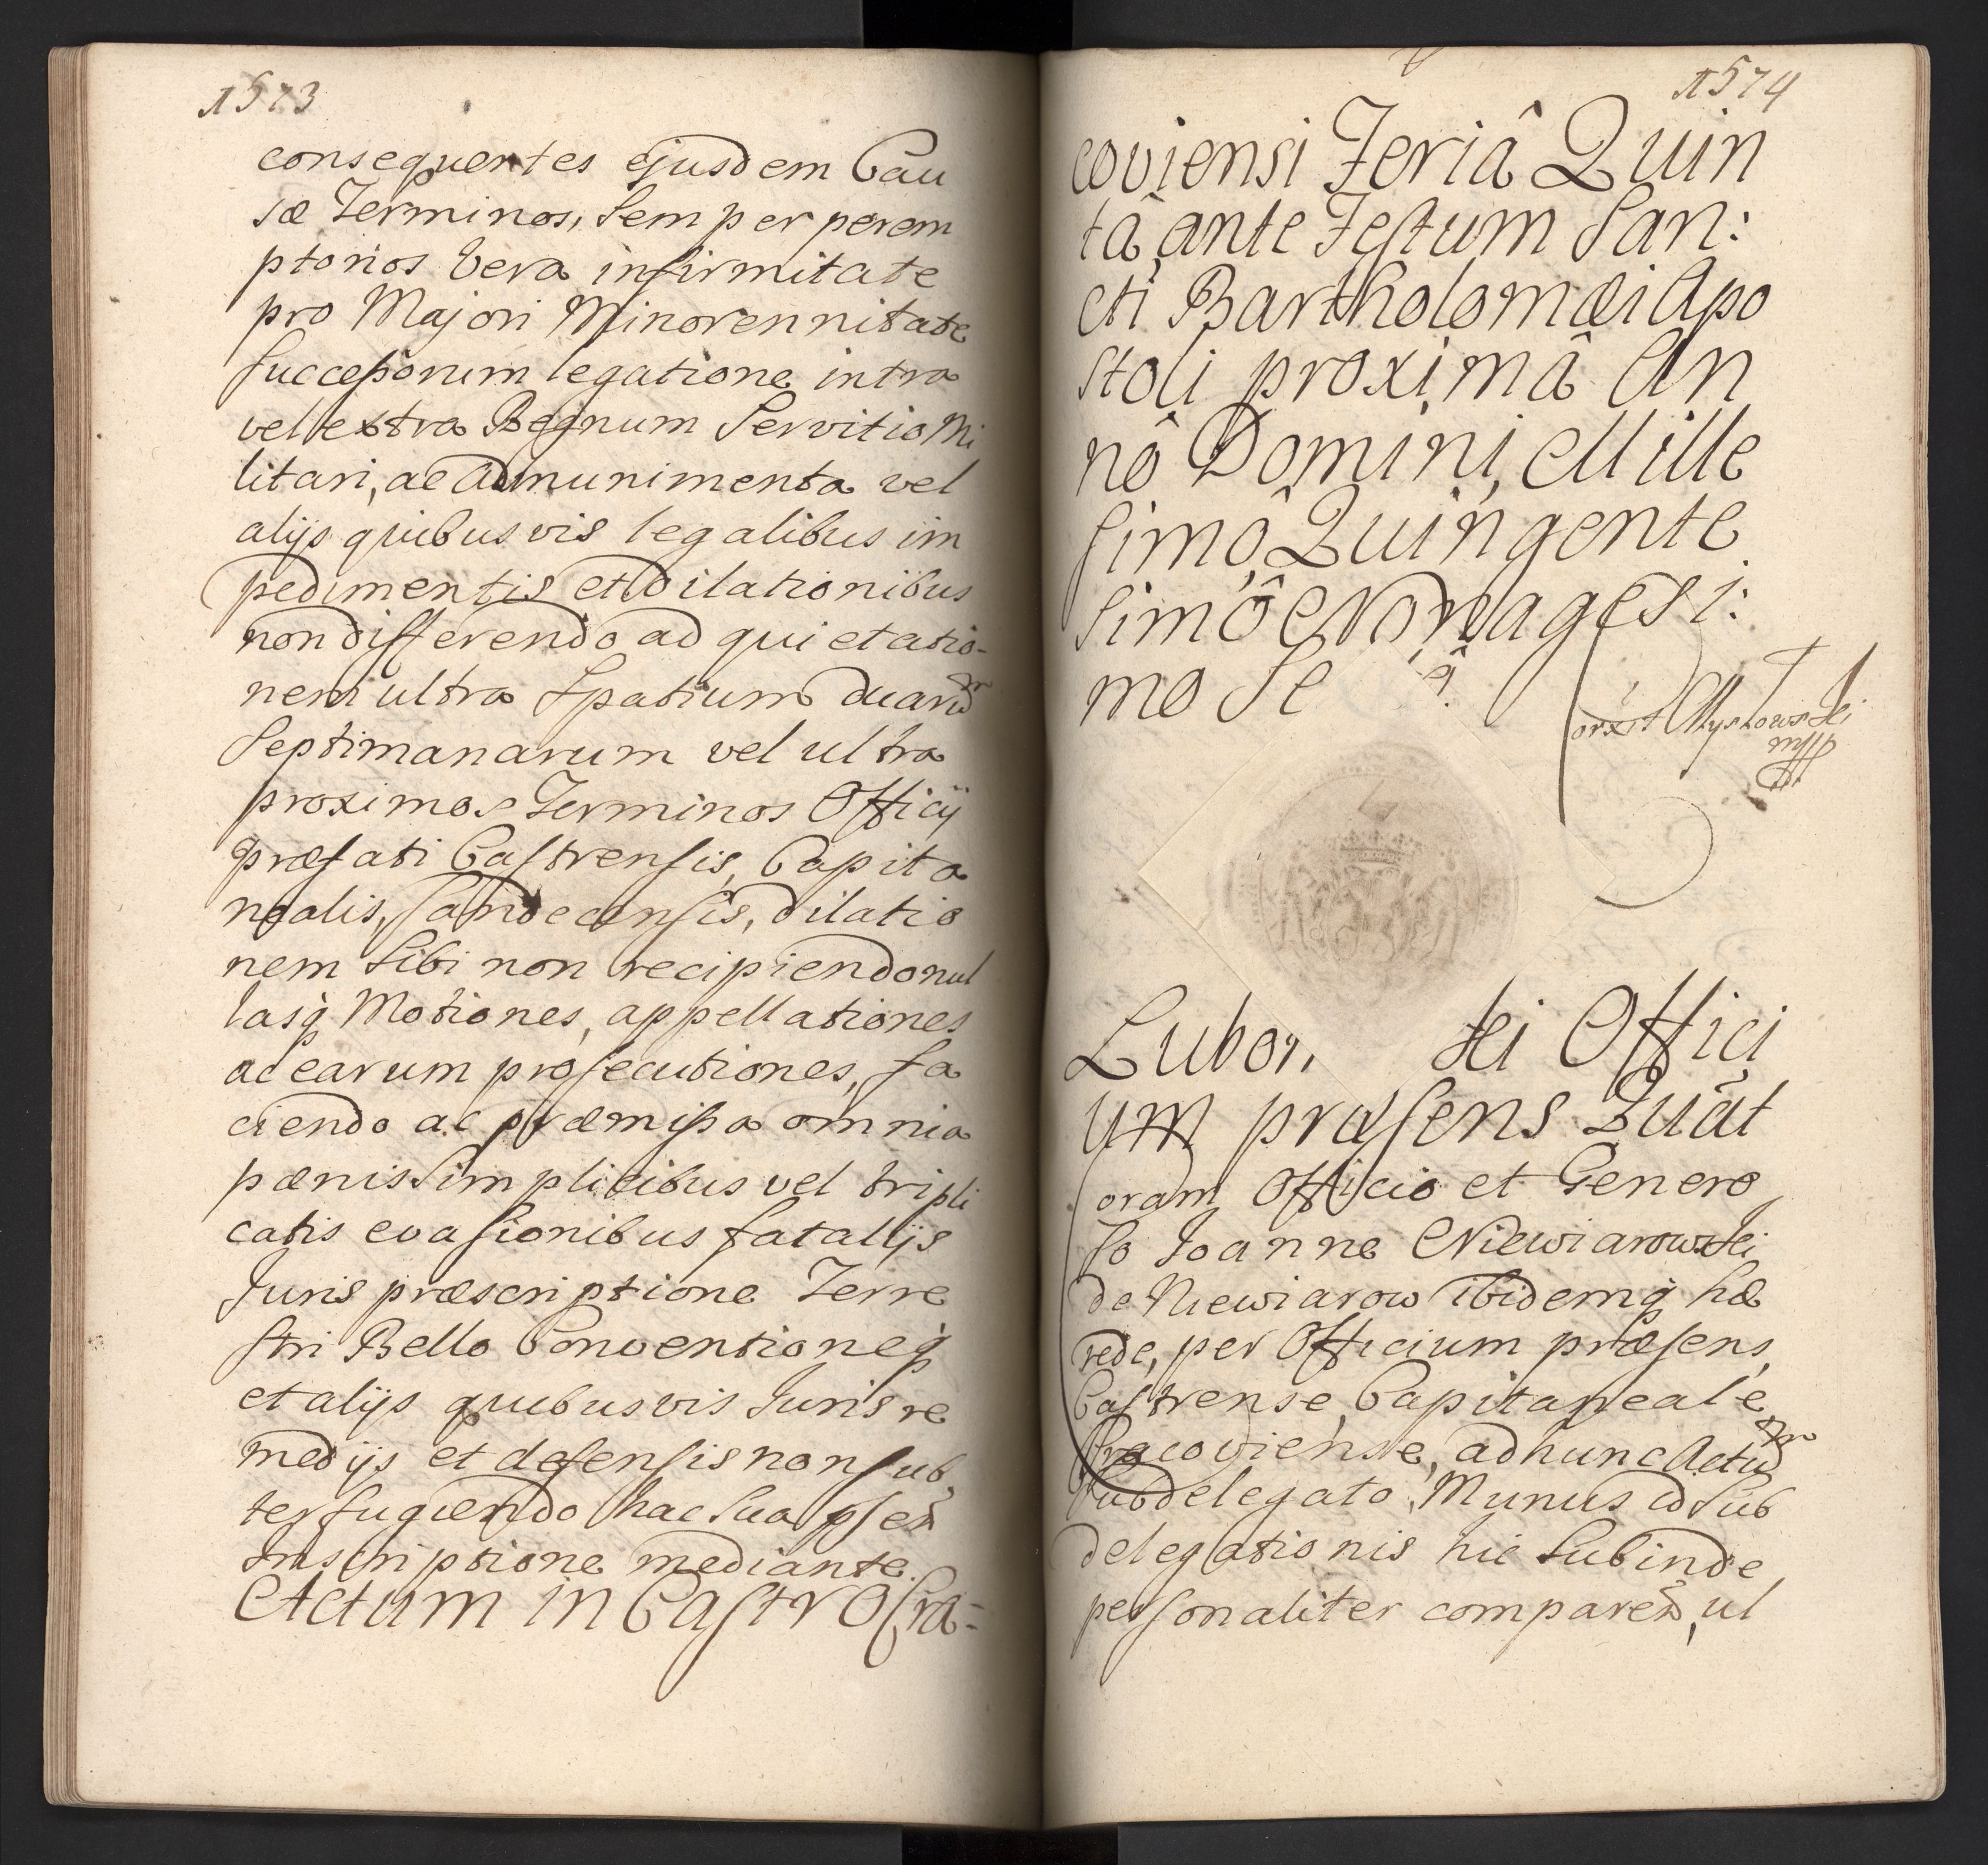 1573
consequentes ejusdem Cau
sæ Terminos, Semper perem
ptorios vera infirmitate
pro Majori Minorennitate
Successorum legatione intra
vel extra Regnum Servitio Mi
litari, ac admunimenta vel
alijs quibusvis legalibus im
pedimentis et dilationibus
non differendo ad quietatio-
nem ultra Spatium duarũ
Septimanarum vel ultra
proximos Terminos Officij
præfati Castrensis, Capita
nealis, Sandecensis, dilatio
nem Sibi non recipiendo nul
lasq Motiones, appellationes
ac earum prosecutiones, fa
ciendo ac præmissa omnia
pænis Simplicibus vel tripli
catis evasionibus fatalijs
Juris præscriptione Terre
stri Bello Conventioneq
et alijs quibusvis Juris re
medijs et defensis non sub
terfugiendo hac Sua pseñ
Inscriptione mediante.
Actum in Castro Cra=
1574
coviensi Feriâ Quin
tâ, ante Festum San:
cti Bartholomæi Apo
stoli proximâ An
nô Domini, Mille
simô, Quingente
simô Nonagesi:
mo Se
Myskowski
mpp
Lubom ski Offici
um præsens Quat
oram Officio et Genero
so Joanne Niewiarowski
de Niewiarow ibidemq hæ
rede, per Officium præsens,
Castrense, Capitaneale
Cracoviense, ad hunc Actũ
Subdelegato, Munus Subdelegationis hic Subinde
personaliter compareñ, ul